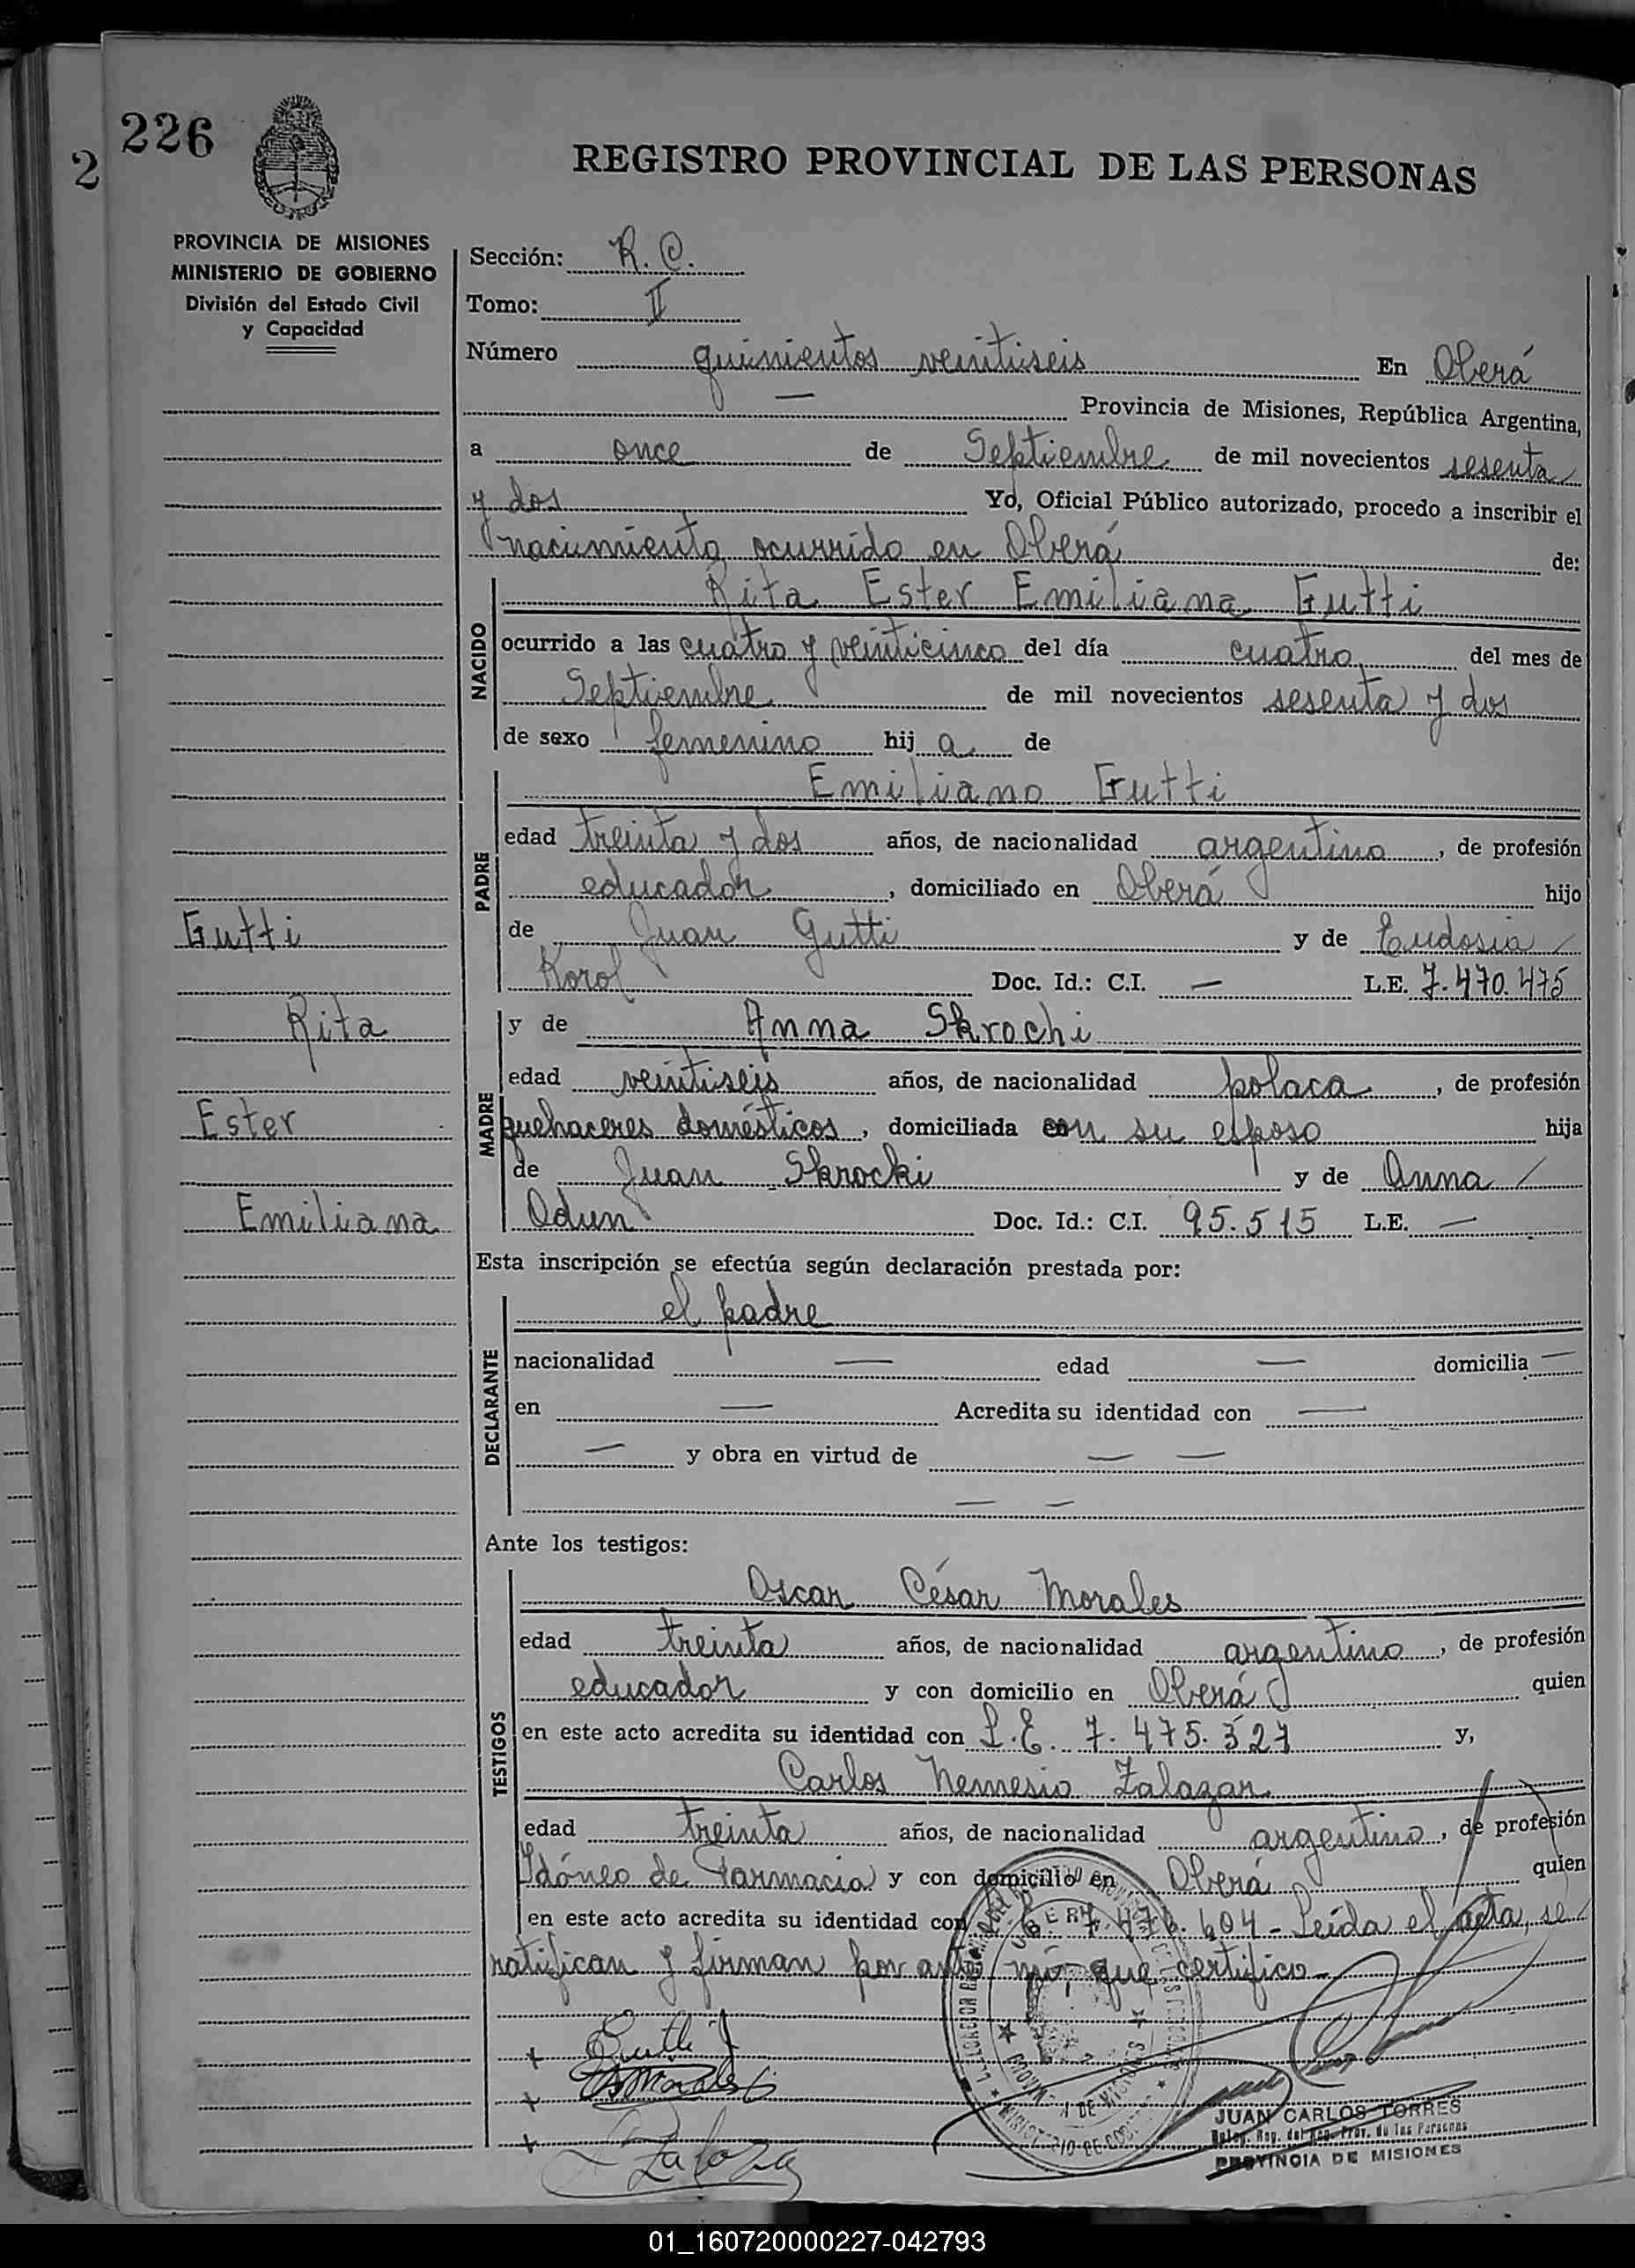 226
2
REGISTRO PROVINCIAL DE LAS PERSONAS
PROVINCIA DE MISIONES
MINISTERIO DE GOBIERNO
División del Estado Civil
y Capacidad
Sección: R. C.
Tomo: II
Número quinientos veintiseis En Oberá
— Provincia de Misiones, República Argentina,
a once de Septiembre de mil novecientos sesenta
y dos Yo, Oficial Público autorizado, procedo a inscribir el
nacimiento ocurrido en Oberá de:
NACIDO
Rita Ester Emiliana Gutti
ocurrido a las cuatro y veinticinco del día cuatro del mes de
Septiembre de mil novecientos sesenta y dos
de sexo femenino hij a de
PADRE
Emiliano Gutti
edad treinta y dos años, de nacionalidad argentino, de profesión
educador, domiciliado en Oberá hijo
de Juan Gutti y de Eudosia
Korol Doc. Id.: C.I. — L.E. 7.470.475
Gutti
Rita
Ester
Emiliana
MADRE
y de Anna Skrochi
edad veintiseis años, de nacionalidad polaca, de profesión
quehaceres domésticos, domiciliada con su esposo hija
de Juan Skrocki y de Anna
Odun Doc. Id.: C.I. 95.515 L.E. —
Esta inscripción se efectúa según declaración prestada por:
DECLARANTE
el padre
nacionalidad — edad — domicilia —
en — Acredita su identidad con —
— y obra en virtud de — —
— —
Ante los testigos:
TESTIGOS
Oscar César Morales
edad treinta años, de nacionalidad argentino, de profesión
educador y con domicilio en Oberá quien
en este acto acredita su identidad con L.E. 7.475.327 y,
Carlos Nemesio Zalazar
edad treinta años, de nacionalidad argentino, de profesión
Idóneo de Farmacia y con domicilio en Oberá quien
en este acto acredita su identidad con 7.476.604 - Leída el acta, se
ratifican y firman por ante mí que certifico
JUAN CARLOS TORRES
Deleg. Reg. del Reg. Prov. de las Personas
PROVINCIA DE MISIONES
01_160720000227-042793